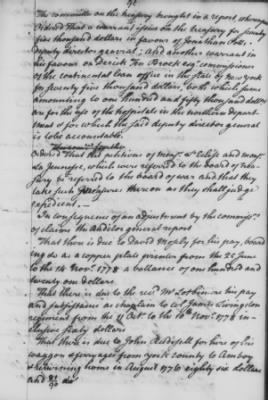 The committee on the treasury brought in a report, whereupon
Ordered That a warrant issue on the treasury for seventy
five thousand dollars in favour of Jonathan Potts,
deputy director general; and another warrant in
his favour on Derick Ten Broeck esqr commissioner
of the continental loan office in the state of New york
for seventy five thousand dollars, both which sums
amounting to one hundred and fifty thousand dollars
on for the use of the hospitals in the northern depart
ment & for which the said deputy director general
is to be accountable.
Ordered That the petitions of and monsr
La Jeunesse, which were referred to the board of trea
sury be referred to the board of war and that they
take such measures thereon as they shall judge
expedient.
In consequence of an adjustment by the commissrs
of claims the auditor general report
That there is due to David Mosely for his pay, board
ing &c as a copper plate printer from the 25 June
to the 14 Novr 1778 a ballance of one hundred and
twenty one dollars
That there is due to the revd Mr his pay
and subsistance as chaplain to col James Livingston
regiment from the 11 Octr to the 10th Novr 1778 in-
clusive sixty dollars
That there is due to John for hire of his
waggon & ferryages from York county to Amboy
& returning home in August 1776 eighty six dollars
and 82/90 do